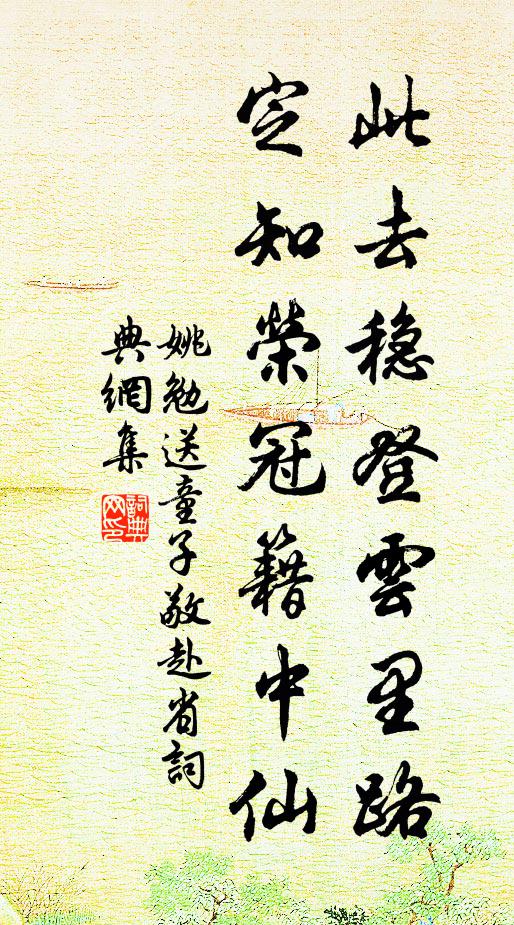 此去穩登雲里路
定知榮冠籍中仙
姚勉送童子敬赴省詞
典網集
詞典
网印